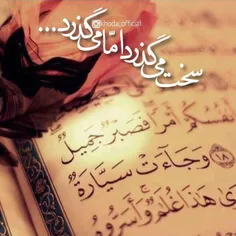 @khoda_official
سخت می گذرد اما می گذرد...
أَنفُسُكُمْ أَمْرًا فَصَبْرٌ جَمِيلٌ
١٨ وَجَاءَتْ سَيَّارَةٌ
هَٰذَا غُلَامٌ وَأَسَرُّوهُ